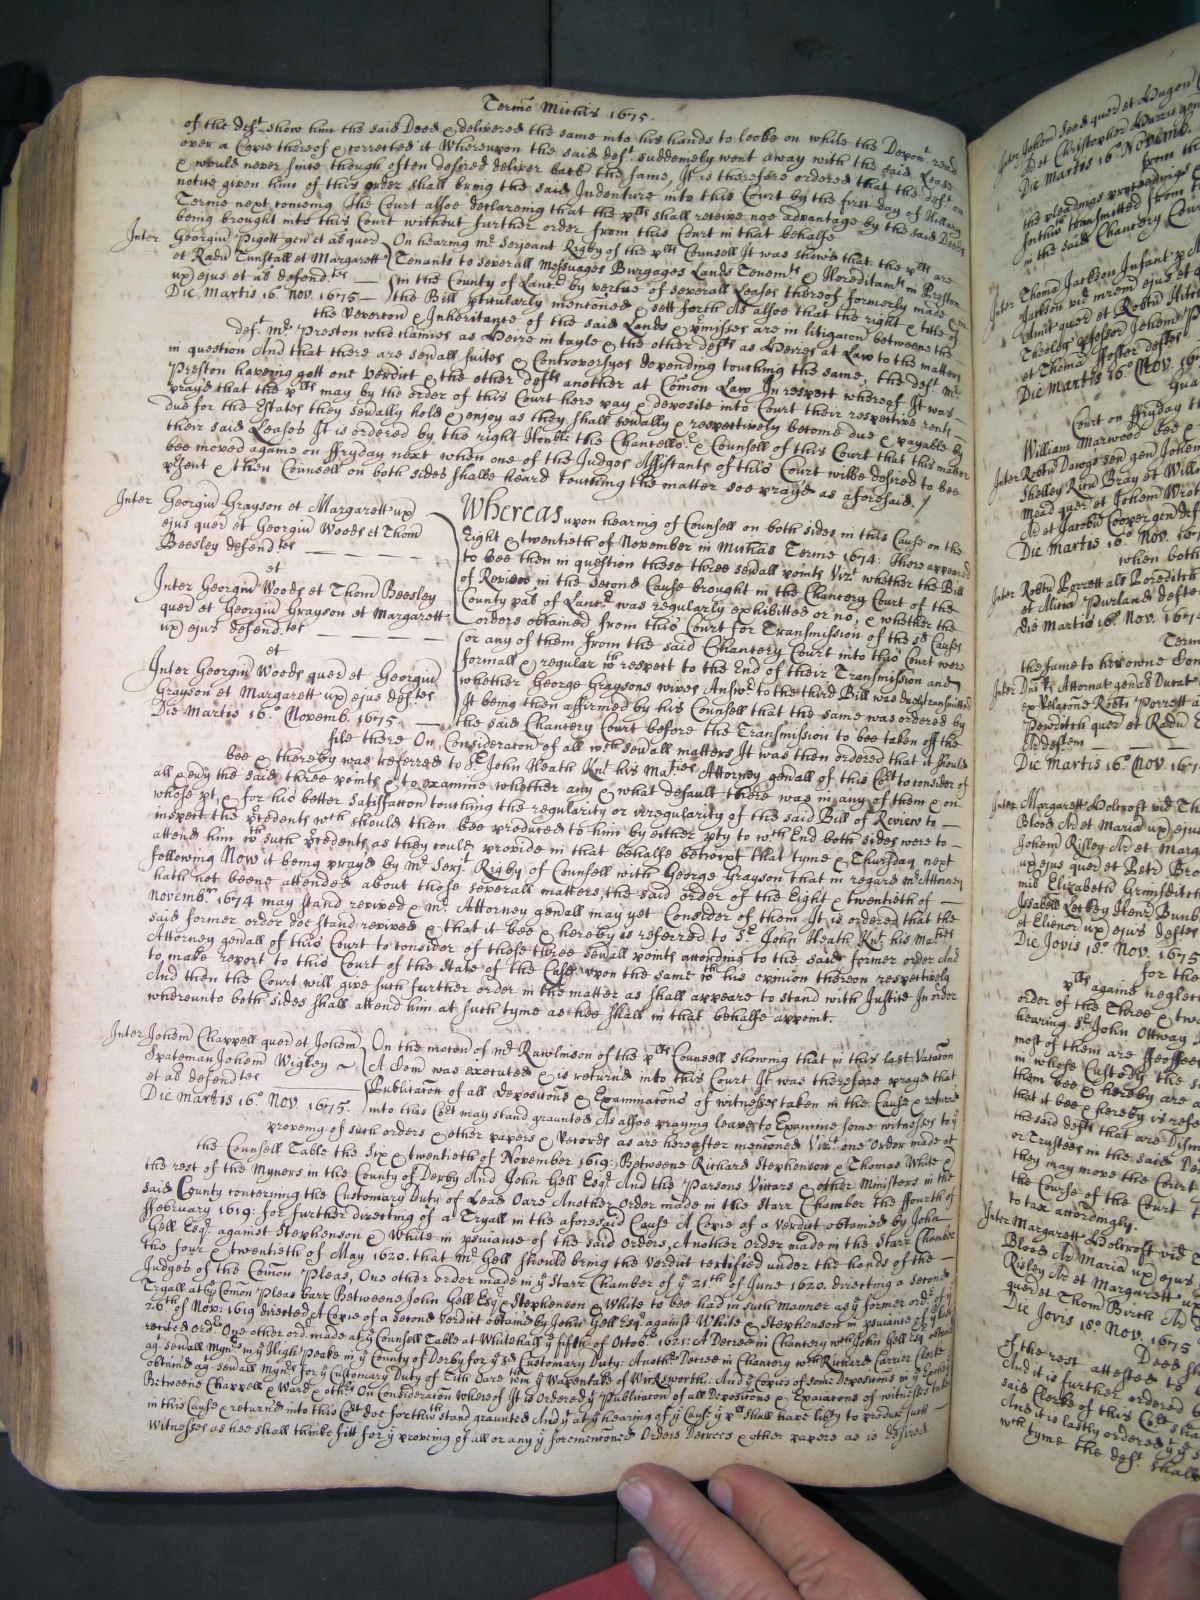 Termo Michis 1675.
of the deft. show him the said Deed & delivered the same into his hands to looke on while the Depont. read
over a Copie thereof & corrected it Whereupon the said deft. suddenely went away with the said Lease
& would never since though often desired deliver back the same, It is therefore ordered that the deft on
notice given him of this order shall bring the said Indenture into this Court by the first day of Hillary
Terme next comeing The Court alsoe declareing that the plts shall receive noe advantage by the said Deeds
being brought into this Court without further order from this Court in that behalfe
Inter Georgiu Pigott gen et als quer
et Radu Tunstall et Margarett
ux ejus et als defend.tes
Die Martis 16.º Nov. 1675
On hearing mr. Serjeant Rigby of the plts Counsell It was shows that the plts are
Tenants to severall Messuages Burgages Lands Tenemts & Hereditamts in Preston
in the County of Lancr by vertue of severall Leases thereof formerly made
the Bill pticularly mentioned & sett forth As alsoe that the right & title of
the Revercon & Inheritance of the said Lands & pmisses are in litigacon betweene the
deft. mr. Preston who claimes as Heire in tayle & the other defts as Heires at Law to the matters
in question And that there are sevall suites & Controversyes depending touching the same, the deft. mr.
Preston haveing gott one Verdict & the other defts another at Comon Law In respect whereof It was
prayed that the plts may by the order of this Court here pay & deposite into Court their respective rents
due for the Estates they sevally hold & enjoy as they shall sevally & respectively become due & payable by
their said Leases It is ordered by the right Honble the Chancellor & Counsell of this Court that this matter
bee moved againe on ffryday next when one of the Judges Assistants of this Court wilbe desired to bee
psent & then Counsell on both sides shalbe heard touching the matter soe prayed as aforesaid.
Inter Georgiu Grayson et Margarett ux
ejus quer et Georgiu Woods et Thom
Beesley defendtes
et
Inter Georgiu Woods et Thom Beesley
quer et Georgiu Grayson et Margarett
ux ejus defend.tes
et
Inter Georgiu Woods quer et Georgiu
Grayson et Margarett ux ejus def.tes
Die Martis 16.º Novemb. 1675
Whereas upon hearing of Counsell on both sides in this Cause on the
Eight & twentieth of November in Michas Terme 1674. There appeared
to bee then in question these three sevall points Vizt. whether the Bill
of Review in the second Cause brought in the Chancery Court of the
County pals of Lancr was regularly exhibitted or no, & whether the
orders obtained from this Court for Transmission of the sd Causes
or any of them from the said Chancery Court into this Court were
formall & regular in respect to the End of their Transmission and
whether George Graysons wives Answr to the third Bill was duely transmitted
It being then affirmed by his Counsell that the same was ordered by
the said Chancery Court before the Transmission to bee taken off the
file there On Consideracon of all wch sevall matters It was then ordered that it should
bee & thereby was referred to Sr. John Heath Knt. his Maties Attorney genall of this Cort to consider of
all & evy the said three points & to examine whether any & what default there was in any of them & on
whose pt, & for his better satisfaction touching the regularity or irregularity of the said Bill of Review to
inspect the psidents wch should then bee produced to him by either pty to wch End both sides were to
attend him wth such psidents as they could provide in that behalfe betwixt that tyme & Thursday next
following Now it being prayed by Mr. Serjt. Rigby of Counsell with George Grayson that in regard mr Attorney
hath not beene attended about those severall matters, the said order of the Eight & twentieth of
Novembr 1674 may stand revived & mr. Attorney genall may yet Consider of them It is ordered that the
said former order doe stand revived & that it bee & hereby is referred to Sr. John Heath Knt. his Maties
Attorney genall of this Court to consider of those three sevall points according to the said former order And
to make report to this Court of the State of the Case upon the same wth his opinion thereon respectively
And then the Court will give such further order in the matter as shall appeare to stand with Justice In order
whereunto both sides shall attend him at such tyme as hee shall in that behalfe appoint.
Inter Johem Chappell quer et Johem
Spateman Johem Wigley
et als defendtes
Die Martis 16º Nov. 1675.
On the motion of mr. Rawlinson of the plts Counsell showing that in this last Vacacon
A Comn was executed & is returned into this Court It was therefore prayed that
Publicacon of all Deposicons & Examinacons of witnesses taken in the Cause & returned
into this Cort may stand graunted As alsoe praying leave to Examine some witnesses to ye
proveing of such orders & other papers & Records as are hereafter mencioned Vizt. one Order made at
the Counsell Table the Six & twentieth of November 1619. Betweene Richard Stephenson & Thomas White &
the rest of the Myners in the County of Derby And John Gell Esqr And the Parsons Vicars & other Ministers in the
said County concerning the Customary Duty of Lead Oare Another Order made in the Starr Chamber the ffourth of
ffebruary 1619. for further directing of a Tryall in the aforesaid Cause A Copie of a Verdict obtained by John
Gell Esqr. against Stephenson & White in psuiance of the said Orders, Another Order made in the Starr Chamber
the four & twentieth of May 1620. that mr. Gell should bring the Verdict certified under the hands of the
Judges of the Comon Pleas, One other order made in ye Starr Chamber of ye 21th of June 1620. directing a second
Tryall at ye Comon Pleas barr Betweene John Gell Esqr & Stephenson & White to bee had in such manner as ye former ordr of ye
26th of Nov: 1619 directed, A Copie of a second Verdict obtained by John Gell Esq. against White & Stephenson in psuiance of ye last
recited Ordr. One other ord. made at ye Counsell Table at Whitehall ye fifth of Octobr. 1621: A Decree in Chancery wch John Gell Esq obtained
agt. sevall Mynrs in ye High Peake in ye County of Derby for ye sd Customary Duty: Anothr Decree in Chancery wch Richard Carrier Clerke
obtained agt. sevall Mynrs for ye Customary Duty of Tith Oare wthin ye Wapentake of Worksworth: And ye Copies of some Deposicons in ye
Betweene Chappell & Ward & othrs. On Consideracon Whereof It is Ordered yt Publicacon of all Deposicons & Exaiacons of witnesses taken
in this Cause & returned into this Cort doe forthwith stand graunted And yt at ye hearing of ye Cause ye plt shall have liberty to produce such
Witnesses as hee shall thinke fitt for ye proveing of all or any ye forementioned Orders Decrees & other papers as is desired
Inter Johem Seed quer et Hugon
Det Christopher Harris gen
Die Martis 16º Novemb.
from the
the pleadings proceedings
forthwth transmitted from
in the said Chancery Court
Inter Thoma Jackson Infant p
Jackson vid mrem ejus et
Amit quer et Robtu
Theolog pfessor Johem
et Thoma ffoster deftes
Die Martis 16º Nov. 16
Court on ffryday
William Marwood Esq
Inter Robtu Dawgs sen gen Johem
Shelley Ricu Bray et Will
mead quer et Johem Wrot
Ar et Jacobu Cooper gen def
Die Martis 16.º Nov. 167
when both
Inter Robtu Perrett als Poreditch
et Miria Purland deftes
die Martis 16.º Nov. 167
Term
the same to her owne
Inter Attornat genal Ducat
ex Relatone Robti Porrett
Penditch quer et Radu
Ar deftem
Die Martis 16.º Nov. 167
Inter Margarett Holcroft vid
Blood Ar et Maria ux ejus
Johem Risley Ar et Marg
ux ejus quer et Petr Bro
mil Elizabeth Grimsditch
Isabell Henr Bunb
et Elienor ux ejus deftes
Die Jovis 18.º Nov. 1675
for the
plts againe neglect
order of the Three & twe
hearing Sr. John Ottway
most of them are ffeoffees
in whose Custody the
them bee & hereby are
that it bee & hereby is refe
the said defts that are Dism
or Trustees in the said De
they may move the Court
the Course of the Court
to tax accordingly.
Inter Margarett Holcroft vid
Blood Ar Maria ux ejus
Risley Ar et Margarett ux
quer et Thom Birch Ar
Die Jovis 18.º Nov. 1675
Deeds
of the rest attested to
And it is further ordered
said Clerke of this Cort sha
And it is lastly ordered yt
wch tyme the deft. shall